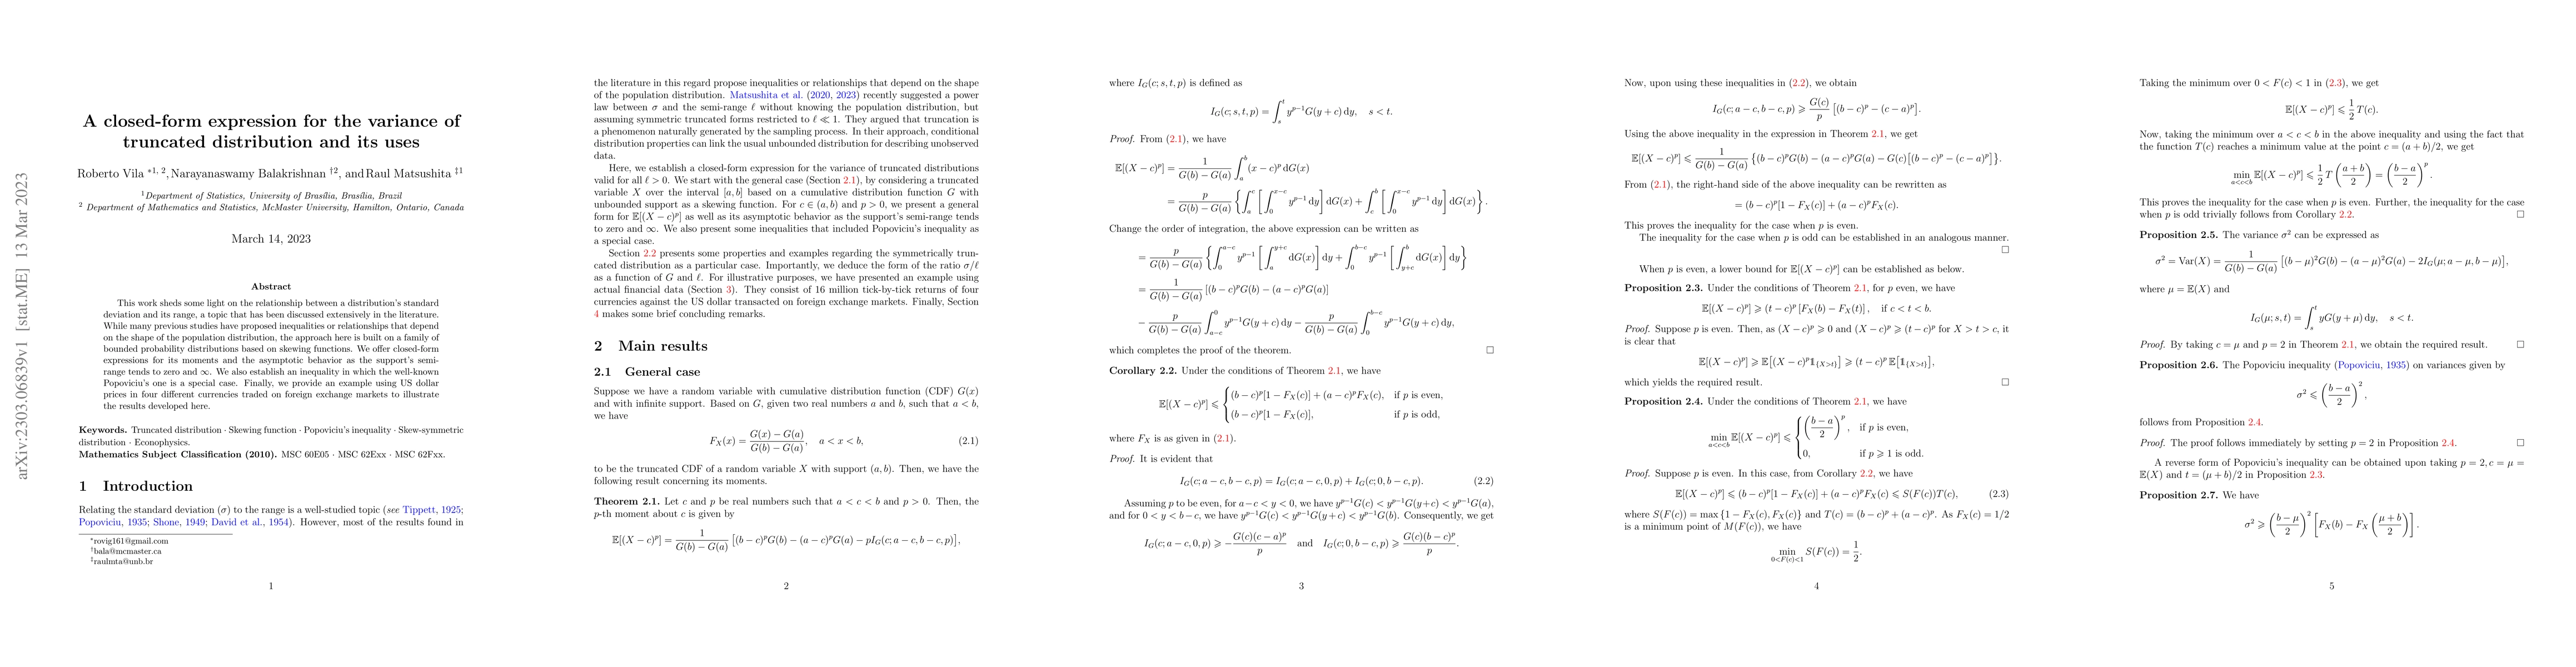 arXiv:2303.06839v1 [stat.ME] 13 Mar 2023
A closed-form expression for the variance of
truncated distribution and its uses
Roberto Vila *1, 2, Narayanaswamy Balakrishnan †2, and Raul Matsushita ‡1
1Department of Statistics, University of Brasília, Brasília, Brazil
2 Department of Mathematics and Statistics, McMaster University, Hamilton, Ontario, Canada
March 14, 2023
Abstract
This work sheds some light on the relationship between a distribution's standard
deviation and its range, a topic that has been discussed extensively in the literature.
While many previous studies have proposed inequalities or relationships that depend
on the shape of the population distribution, the approach here is built on a family of
bounded probability distributions based on skewing functions. We offer closed-form
expressions for its moments and the asymptotic behavior as the support's semi-
range tends to zero and ∞. We also establish an inequality in which the well-known
Popoviciu's one is a special case. Finally, we provide an example using US dollar
prices in four different currencies traded on foreign exchange markets to illustrate
the results developed here.
Keywords. Truncated distribution · Skewing function · Popoviciu's inequality · Skew-symmetric
distribution · Econophysics.
Mathematics Subject Classification (2010). MSC 60E05 · MSC 62Exx · MSC 62Fxx.
1 Introduction
Relating the standard deviation (σ) to the range is a well-studied topic (see Tippett, 1925;
Popoviciu, 1935; Shone, 1949; David et al., 1954). However, most of the results found in
*rovig161@gmail.com
†bala@mcmaster.ca
‡raulmta@unb.br
1
the literature in this regard propose inequalities or relationships that depend on the shape
of the population distribution. Matsushita et al. (2020, 2023) recently suggested a power
law between σ and the semi-range ℓ without knowing the population distribution, but
assuming symmetric truncated forms restricted to ℓ ≪ 1. They argued that truncation is
a phenomenon naturally generated by the sampling process. In their approach, conditional
distribution properties can link the usual unbounded distribution for describing unobserved
data.
Here, we establish a closed-form expression for the variance of truncated distributions
valid for all ℓ > 0. We start with the general case (Section 2.1), by considering a truncated
variable X over the interval [a, b] based on a cumulative distribution function G with
unbounded support as a skewing function. For c ∈ (a, b) and p > 0, we present a general
form for 𝔼[(X − c)^p] as well as its asymptotic behavior as the support's semi-range tends
to zero and ∞. We also present some inequalities that included Popoviciu's inequality as
a special case.
Section 2.2 presents some properties and examples regarding the symmetrically trun-
cated distribution as a particular case. Importantly, we deduce the form of the ratio σ/ℓ
as a function of G and ℓ. For illustrative purposes, we have presented an example using
actual financial data (Section 3). They consist of 16 million tick-by-tick returns of four
currencies against the US dollar transacted on foreign exchange markets. Finally, Section
4 makes some brief concluding remarks.
2 Main results
2.1 General case
Suppose we have a random variable with cumulative distribution function (CDF) G(x)
and with infinite support. Based on G, given two real numbers a and b, such that a < b,
we have
F_X(x) = (G(x) − G(a))/(G(b) − G(a)), a < x < b, (2.1)
to be the truncated CDF of a random variable X with support (a, b). Then, we have the
following result concerning its moments.
Theorem 2.1. Let c and p be real numbers such that a < c < b and p > 0. Then, the
p-th moment about c is given by
𝔼[(X − c)^p] = 1/(G(b) − G(a)) [(b − c)^p G(b) − (a − c)^p G(a) − pI_G(c; a − c, b − c, p)],
2
where I_G(c; s, t, p) is defined as
I_G(c; s, t, p) = ∫_s^t y^{p−1} G(y + c) dy, s < t.
Proof. From (2.1), we have
𝔼[(X − c)^p] = 1/(G(b) − G(a)) ∫_a^b (x − c)^p dG(x)
= p/(G(b) − G(a)) { ∫_a^c [ ∫_0^{x−c} y^{p−1} dy ] dG(x) + ∫_c^b [ ∫_0^{x−c} y^{p−1} dy ] dG(x) }.
Change the order of integration, the above expression can be written as
= p/(G(b) − G(a)) { ∫_0^{a−c} y^{p−1} [ ∫_a^{y+c} dG(x) ] dy + ∫_0^{b−c} y^{p−1} [ ∫_{y+c}^b dG(x) ] dy }
= 1/(G(b) − G(a)) [(b − c)^p G(b) − (a − c)^p G(a)]
− p/(G(b) − G(a)) ∫_{a−c}^0 y^{p−1} G(y + c) dy − p/(G(b) − G(a)) ∫_0^{b−c} y^{p−1} G(y + c) dy,
which completes the proof of the theorem. □
Corollary 2.2. Under the conditions of Theorem 2.1, we have
𝔼[(X − c)^p] ⩽ { (b − c)^p[1 − F_X(c)] + (a − c)^p F_X(c), if p is even,
(b − c)^p[1 − F_X(c)], if p is odd,
where F_X is as given in (2.1).
Proof. It is evident that
I_G(c; a − c, b − c, p) = I_G(c; a − c, 0, p) + I_G(c; 0, b − c, p). (2.2)
Assuming p to be even, for a−c < y < 0, we have y^{p−1}G(c) < y^{p−1}G(y+c) < y^{p−1}G(a),
and for 0 < y < b−c, we have y^{p−1}G(c) < y^{p−1}G(y+c) < y^{p−1}G(b). Consequently, we get
I_G(c; a − c, 0, p) ⩾ −G(c)(c − a)^p/p and I_G(c; 0, b − c, p) ⩾ G(c)(b − c)^p/p.
3
Now, upon using these inequalities in (2.2), we obtain
I_G(c; a − c, b − c, p) ⩾ G(c)/p [(b − c)^p − (c − a)^p].
Using the above inequality in the expression in Theorem 2.1, we get
𝔼[(X − c)^p] ⩽ 1/(G(b) − G(a)) {(b − c)^p G(b) − (a − c)^p G(a) − G(c)[(b − c)^p − (c − a)^p]}.
From (2.1), the right-hand side of the above inequality can be rewritten as
= (b − c)^p[1 − F_X(c)] + (a − c)^p F_X(c).
This proves the inequality for the case when p is even.
The inequality for the case when p is odd can be established in an analogous manner.
□
When p is even, a lower bound for 𝔼[(X − c)^p] can be established as below.
Proposition 2.3. Under the conditions of Theorem 2.1, for p even, we have
𝔼[(X − c)^p] ⩾ (t − c)^p [F_X(b) − F_X(t)], if c < t < b.
Proof. Suppose p is even. Then, as (X − c)^p ⩾ 0 and (X − c)^p ⩾ (t − c)^p for X > t > c, it
is clear that
𝔼[(X − c)^p] ⩾ 𝔼[(X − c)^p 𝟙_{X>t}] ⩾ (t − c)^p 𝔼[𝟙_{X>t}],
which yields the required result. □
Proposition 2.4. Under the conditions of Theorem 2.1, we have
min_{a<c<b} 𝔼[(X − c)^p] ⩽ { ((b − a)/2)^p, if p is even,
0, if p ⩾ 1 is odd.
Proof. Suppose p is even. In this case, from Corollary 2.2, we have
𝔼[(X − c)^p] ⩽ (b − c)^p[1 − F_X(c)] + (a − c)^p F_X(c) ⩽ S(F(c))T(c), (2.3)
where S(F(c)) = max{1 − F_X(c), F_X(c)} and T(c) = (b − c)^p + (a − c)^p. As F_X(c) = 1/2
is a minimum point of M(F(c)), we have
min_{0<F(c)<1} S(F(c)) = 1/2.
4
Taking the minimum over 0 < F(c) < 1 in (2.3), we get
𝔼[(X − c)^p] ⩽ 1/2 T(c).
Now, taking the minimum over a < c < b in the above inequality and using the fact that
the function T(c) reaches a minimum value at the point c = (a + b)/2, we get
min_{a<c<b} 𝔼[(X − c)^p] ⩽ 1/2 T((a + b)/2) = ((b − a)/2)^p.
This proves the inequality for the case when p is even. Further, the inequality for the case
when p is odd trivially follows from Corollary 2.2. □
Proposition 2.5. The variance σ² can be expressed as
σ² = Var(X) = 1/(G(b) − G(a)) [(b − μ)²G(b) − (a − μ)²G(a) − 2I_G(μ; a − μ, b − μ)],
where μ = 𝔼(X) and
I_G(μ; s, t) = ∫_s^t yG(y + μ) dy, s < t.
Proof. By taking c = μ and p = 2 in Theorem 2.1, we obtain the required result. □
Proposition 2.6. The Popoviciu inequality (Popoviciu, 1935) on variances given by
σ² ⩽ ((b − a)/2)²,
follows from Proposition 2.4.
Proof. The proof follows immediately by setting p = 2 in Proposition 2.4. □
A reverse form of Popoviciu's inequality can be obtained upon taking p = 2, c = μ =
𝔼(X) and t = (μ + b)/2 in Proposition 2.3.
Proposition 2.7. We have
σ² ⩾ ((b − μ)/2)² [F_X(b) − F_X((μ + b)/2)].
5